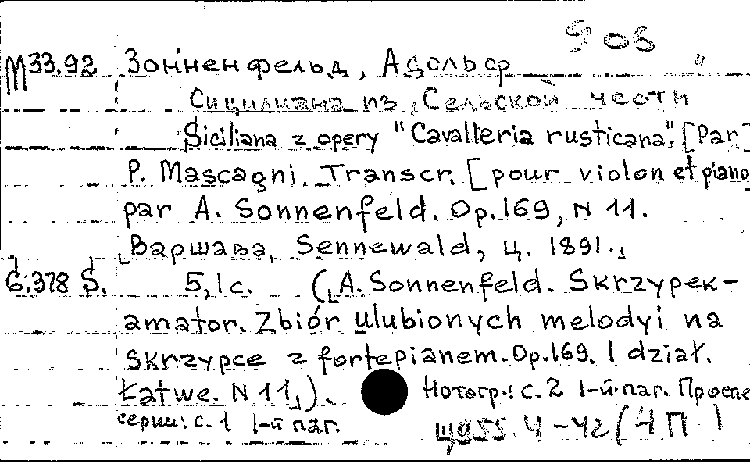 908
М33.92 Зонненфельд, Адольф
Сицилиана из „Сельской чести"
Siciliana z opery "Cavalleria rusticana". [Par]
P. Mascagni. Transcr. [pour violon et piano
par A. Sonnenfeld. Op.169, N 11.
Варшава, Sennewald, ц. 1891.
6.378 S. 5,1 с. (A. Sonnenfeld. Skrzypek-
amator. Zbiór ulubionych melodyi na
skrzypce z fortepianem. Op.169. I dział.
Łatwe. N 11.). Нотогр.: с. 2 1-й паг. Проспе
серии: с. 1 1-й паг.